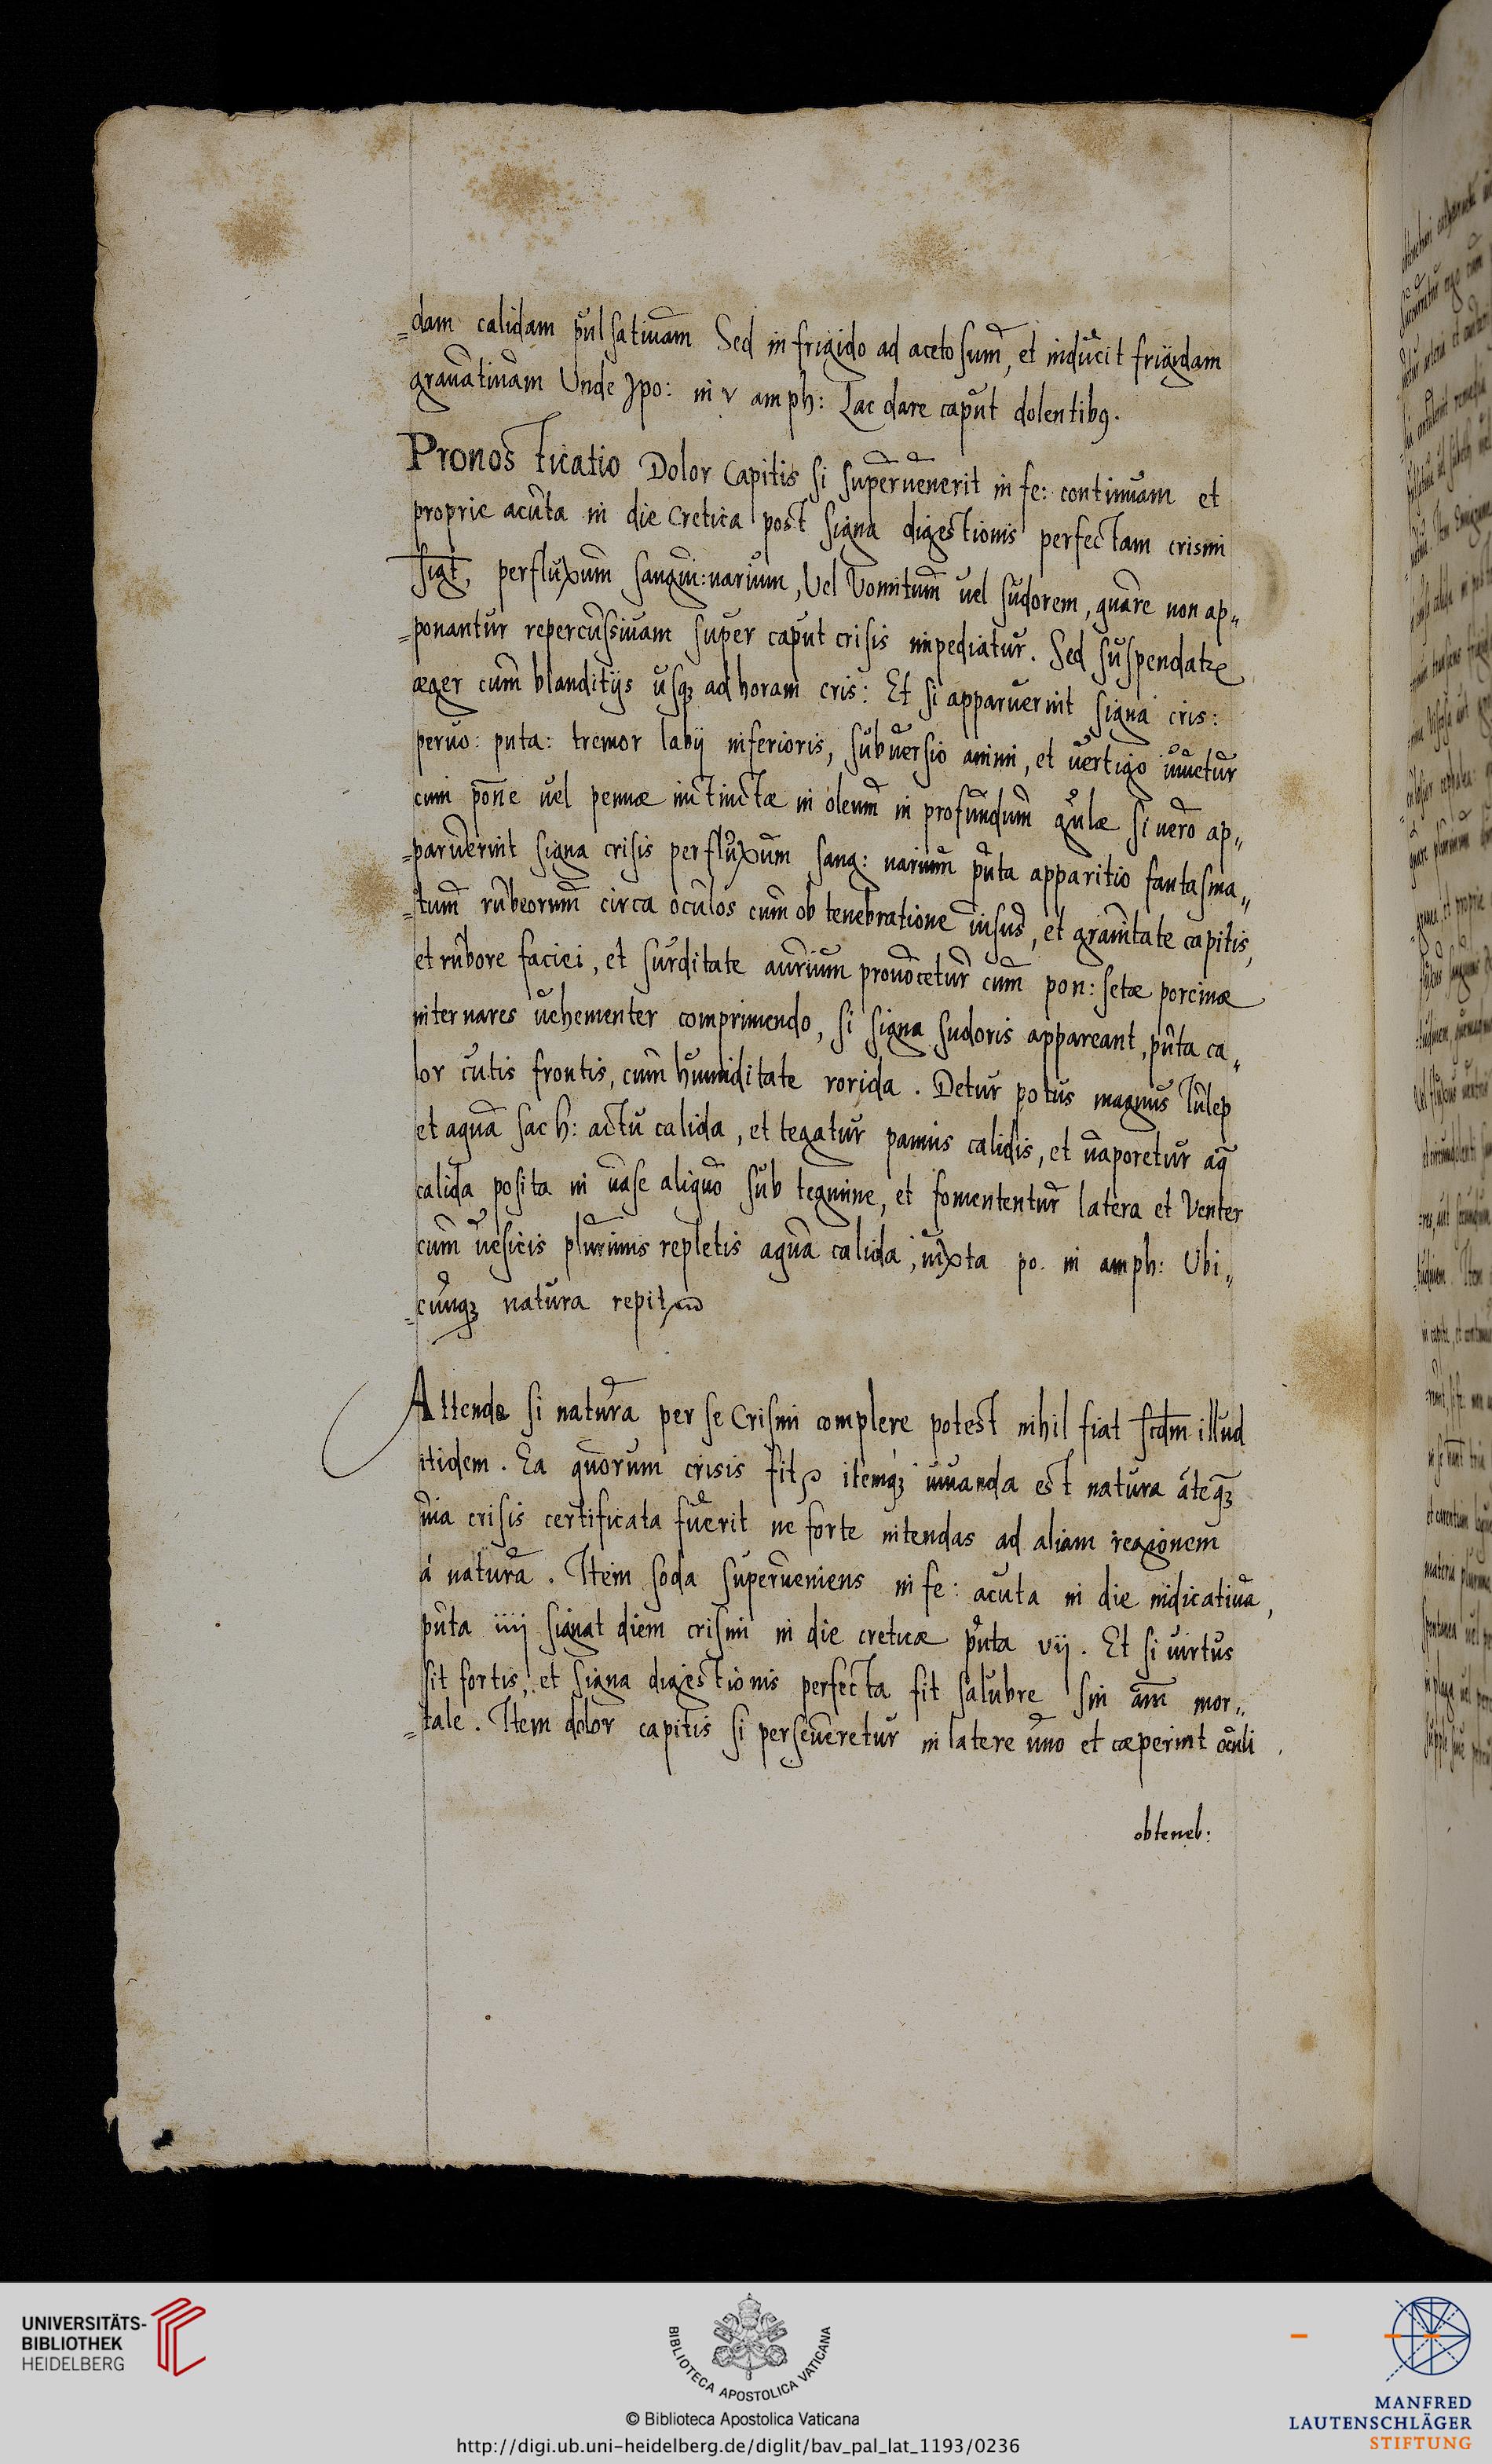 =dam calidam pulsativam Sed in frigido ad acetosum, et inducit frigidam
gravativam Unde Ipo: in v amph: Lac dare caput dolentibꝰ.
Pronosticatio Dolor Capitis si supervenerit in fe: continuam et
proprie acuta in die Cretica post signa digestionis perfectam crisim
sigt, perfluxum sangui:narium, Vel Vomitum vel sudorem, quare non ap„
=ponantur repercussivam super caput crisis impediatur. Sed suspendatꝛ
æger cum blanditijs usqꝫ ad horam cris: Et si apparuerint signa cris:
pervo: puta: tremor labij inferioris, subversio animi, et vertigo iuvetur
cum pōne vel pennæ intinctæ in oleum in profundum gulæ si vero ap„
=paruerint signa crisis perfluxum sang: narium puta apparitio fantasma„
=tum rubeorum circa oculos cum obtenebratione visus, et gravitate capitis,
et rubore faciei, et surditate aurium provocetur cum pon: setæ porcinæ
inter nares vehementer comprimendo, si signa sudoris appareant, puta ca„
lor cutis frontis, cum humiditate rorida. Detur potus magnus Iulep
et aqua sach: actu calida, et tegatur pannis calidis, et vaporetur aq̄
calida posita in vase aliquo sub tegmine, et fomententur latera et Venter
cum vesicis plurimis repletis aqua calida, iuxta po. in amph: Ubi„
=cunqꝫ natura repit
Attende si natura per se Crisim complere potest nihil fiat scdm illud
itidem. Ea quorum crisis fit itemqꝫ iuvanda est natura āteqꝫ
via crisis certificata fuerit ne forte intendas ad aliam regionem
á natura. Item soda superveniens in fe: acuta in die indicativa,
puta iiij signat diem crisim in die creticæ puta vij. Et si virtus
sit fortis, et signa digestionis perfecta fit salubre sin am̄ mor„
=tale. Item dolor capitis si perseveretur in latere uno et cæperint oculi
obteneb:
UNIVERSITÄTS-
BIBLIOTHEK
HEIDELBERG
BIBLIOTECA APOSTOLICA VATICANA
© Biblioteca Apostolica Vaticana
http://digi.ub.uni-heidelberg.de/diglit/bav_pal_lat_1193/0236
MANFRED
LAUTENSCHLÄGER
STIFTUNG